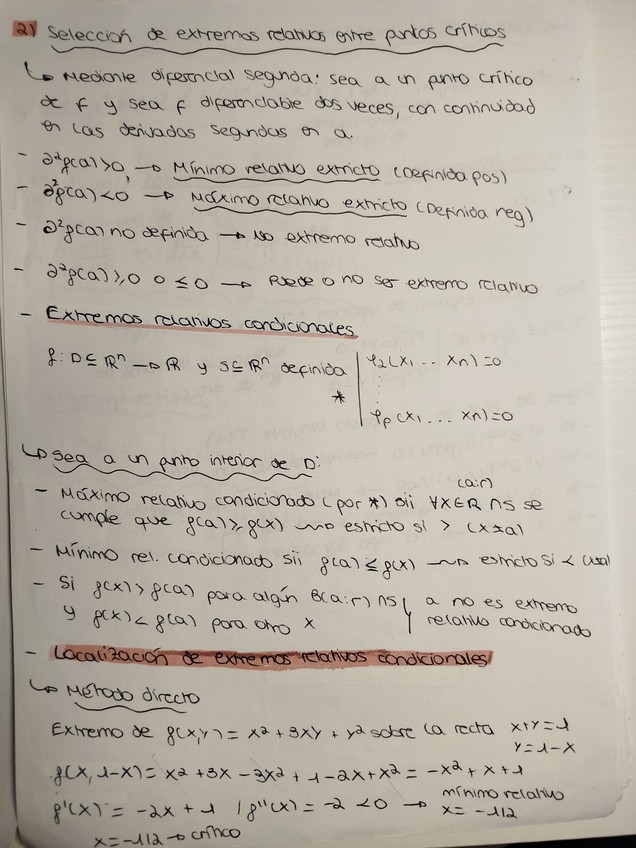 2) Selección de extremos relativos entre puntos críticos
↳ Mediante diferencial segunda: sea a un punto crítico
de f y sea f diferenciable dos veces, con continuidad
en las derivadas segundas en a.
- ∂²f(a) > 0, → Mínimo relativo extricto (Definida pos)
- ∂²f(a) < 0 → Máximo relativo extricto (Definida neg)
- ∂²f(a) no definida → No extremo relativo
- ∂²f(a) ≥ 0 o ≤ 0 → Puede o no ser extremo relativo
- Extremos relativos condicionales
f: D ⊆ ℝⁿ → ℝ y S ⊆ ℝⁿ definida | φ₂(x₁ ... xn) = 0
* ⋮
φp(x₁ ... xn) = 0
↳ Sea a un punto interior de D:
- Máximo relativo condicionado (por *) sii ∀x ∈ B (a;r) ∩ S se
cumple que f(a) ≥ f(x) ⟿ estricto si > (x≠a)
- Mínimo rel. condicionado sii f(a) ≤ f(x) ⟿ estricto si < (x≠a)
- Si f(x) > f(a) para algún B(a;r) ∩ S } a no es extremo
y f(x) < f(a) para otro x } relativo condicionado
- Localización de extremos relativos condicionales
↳ Método directo
Extremo de f(x,y) = x² + 3xy + y² sobre la recta x+y=1
y=1-x
f(x, 1-x) = x² + 3x - 3x² + 1 - 2x + x² = -x² + x + 1
f'(x) = -2x + 1 / f''(x) = -2 < 0 → mínimo relativo
x = -1/2
x = -1/2 → crítico